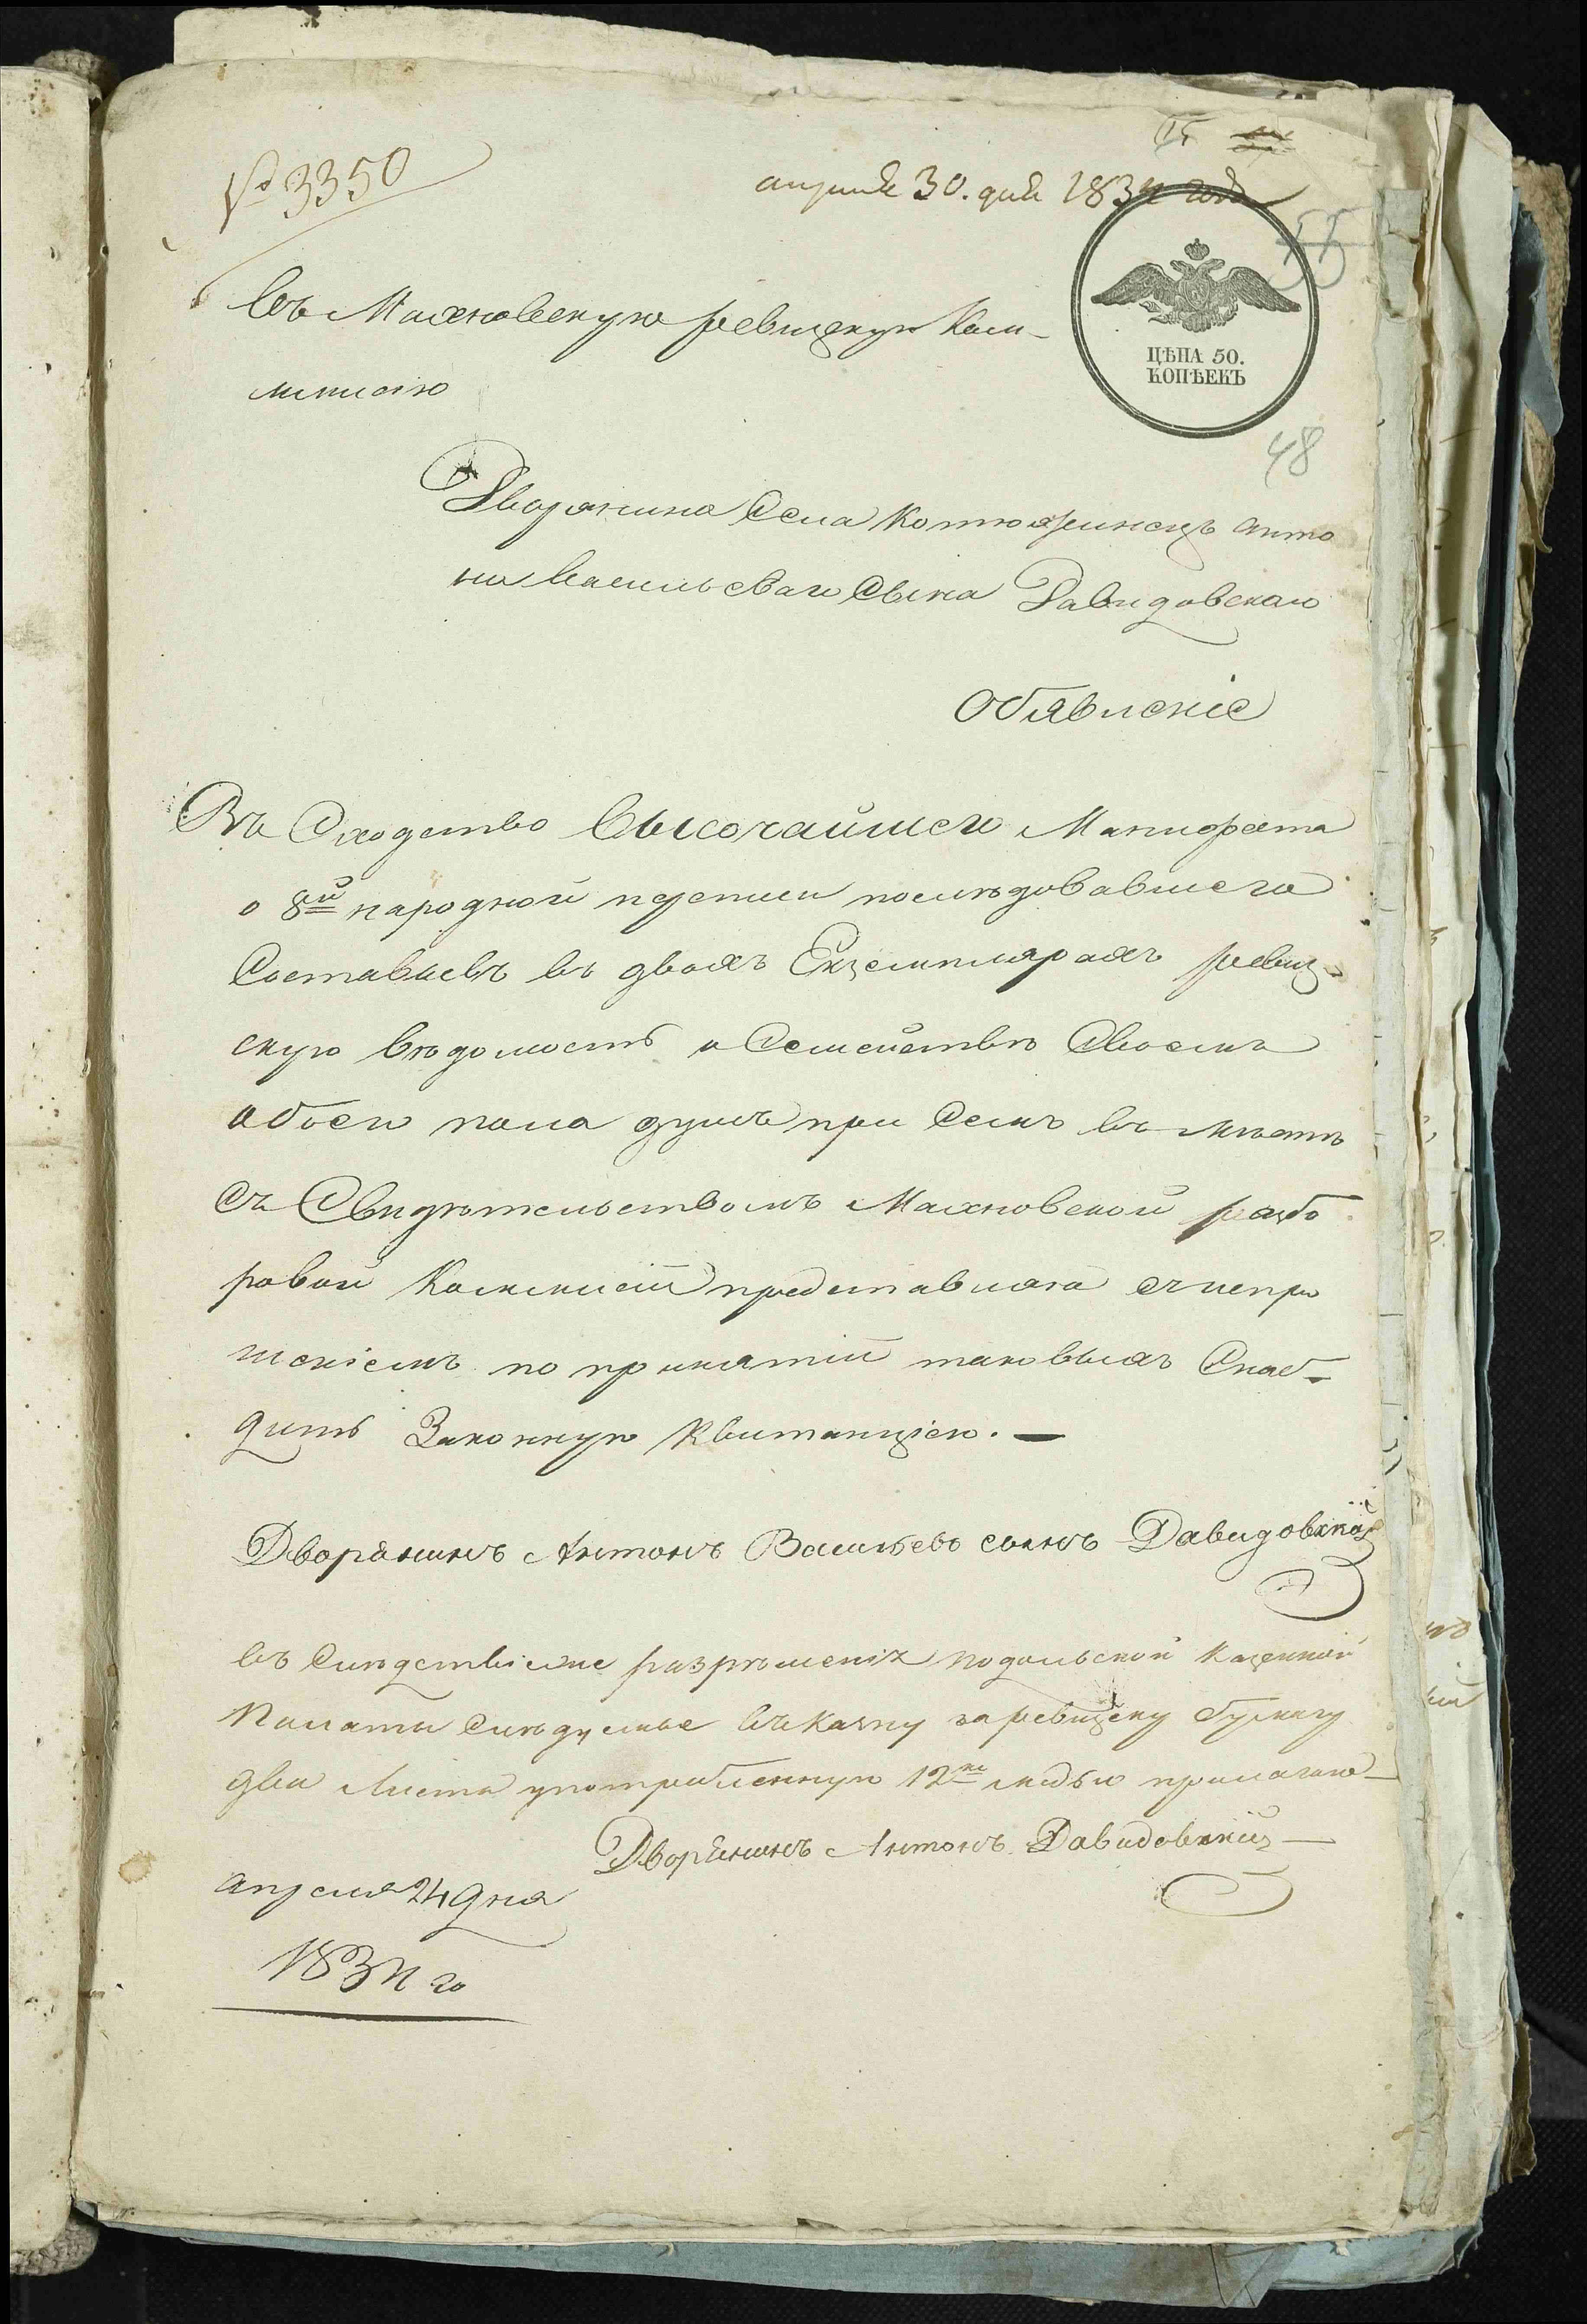 № 3350
апреля 30. дня 1834 года
55
ЦѢНА 50.
КОПѢЕКЪ
48
Въ Махновскую ревизскую Ком-
мисію
Дворянина Села Котюжинецъ Анто
на Васильеваго Сына Давидовскаго
Обявленіе
Въ Сходство Высочайшаго Манифеста
о 8й народной переписи последовавшего
Составивъ въ двохъ Екземплярахъ ревиз-
скую вѣдомость о Семействѣ Своемъ
обоего пола душъ при Семъ въ мѣстѣ
Съ Свидѣтельствомъ Махновской разбо
ровой Коммисіи представляю съ испро
шеніемъ по принятіи таковыхъ Снаб-
дить Законную Квитанціею. —
Дворянинъ Антонъ Васильевъ сынъ Давидовскій
въ Слѣдствіе же разрѣшенія подольской казенной
Палаты Слѣдуемые въ казну за ревизску бумагу
два Листа употребленную 12 медью прилагаю —
Дворянинъ Антонъ Давидовскій —
апреля 24 дня
1834 го